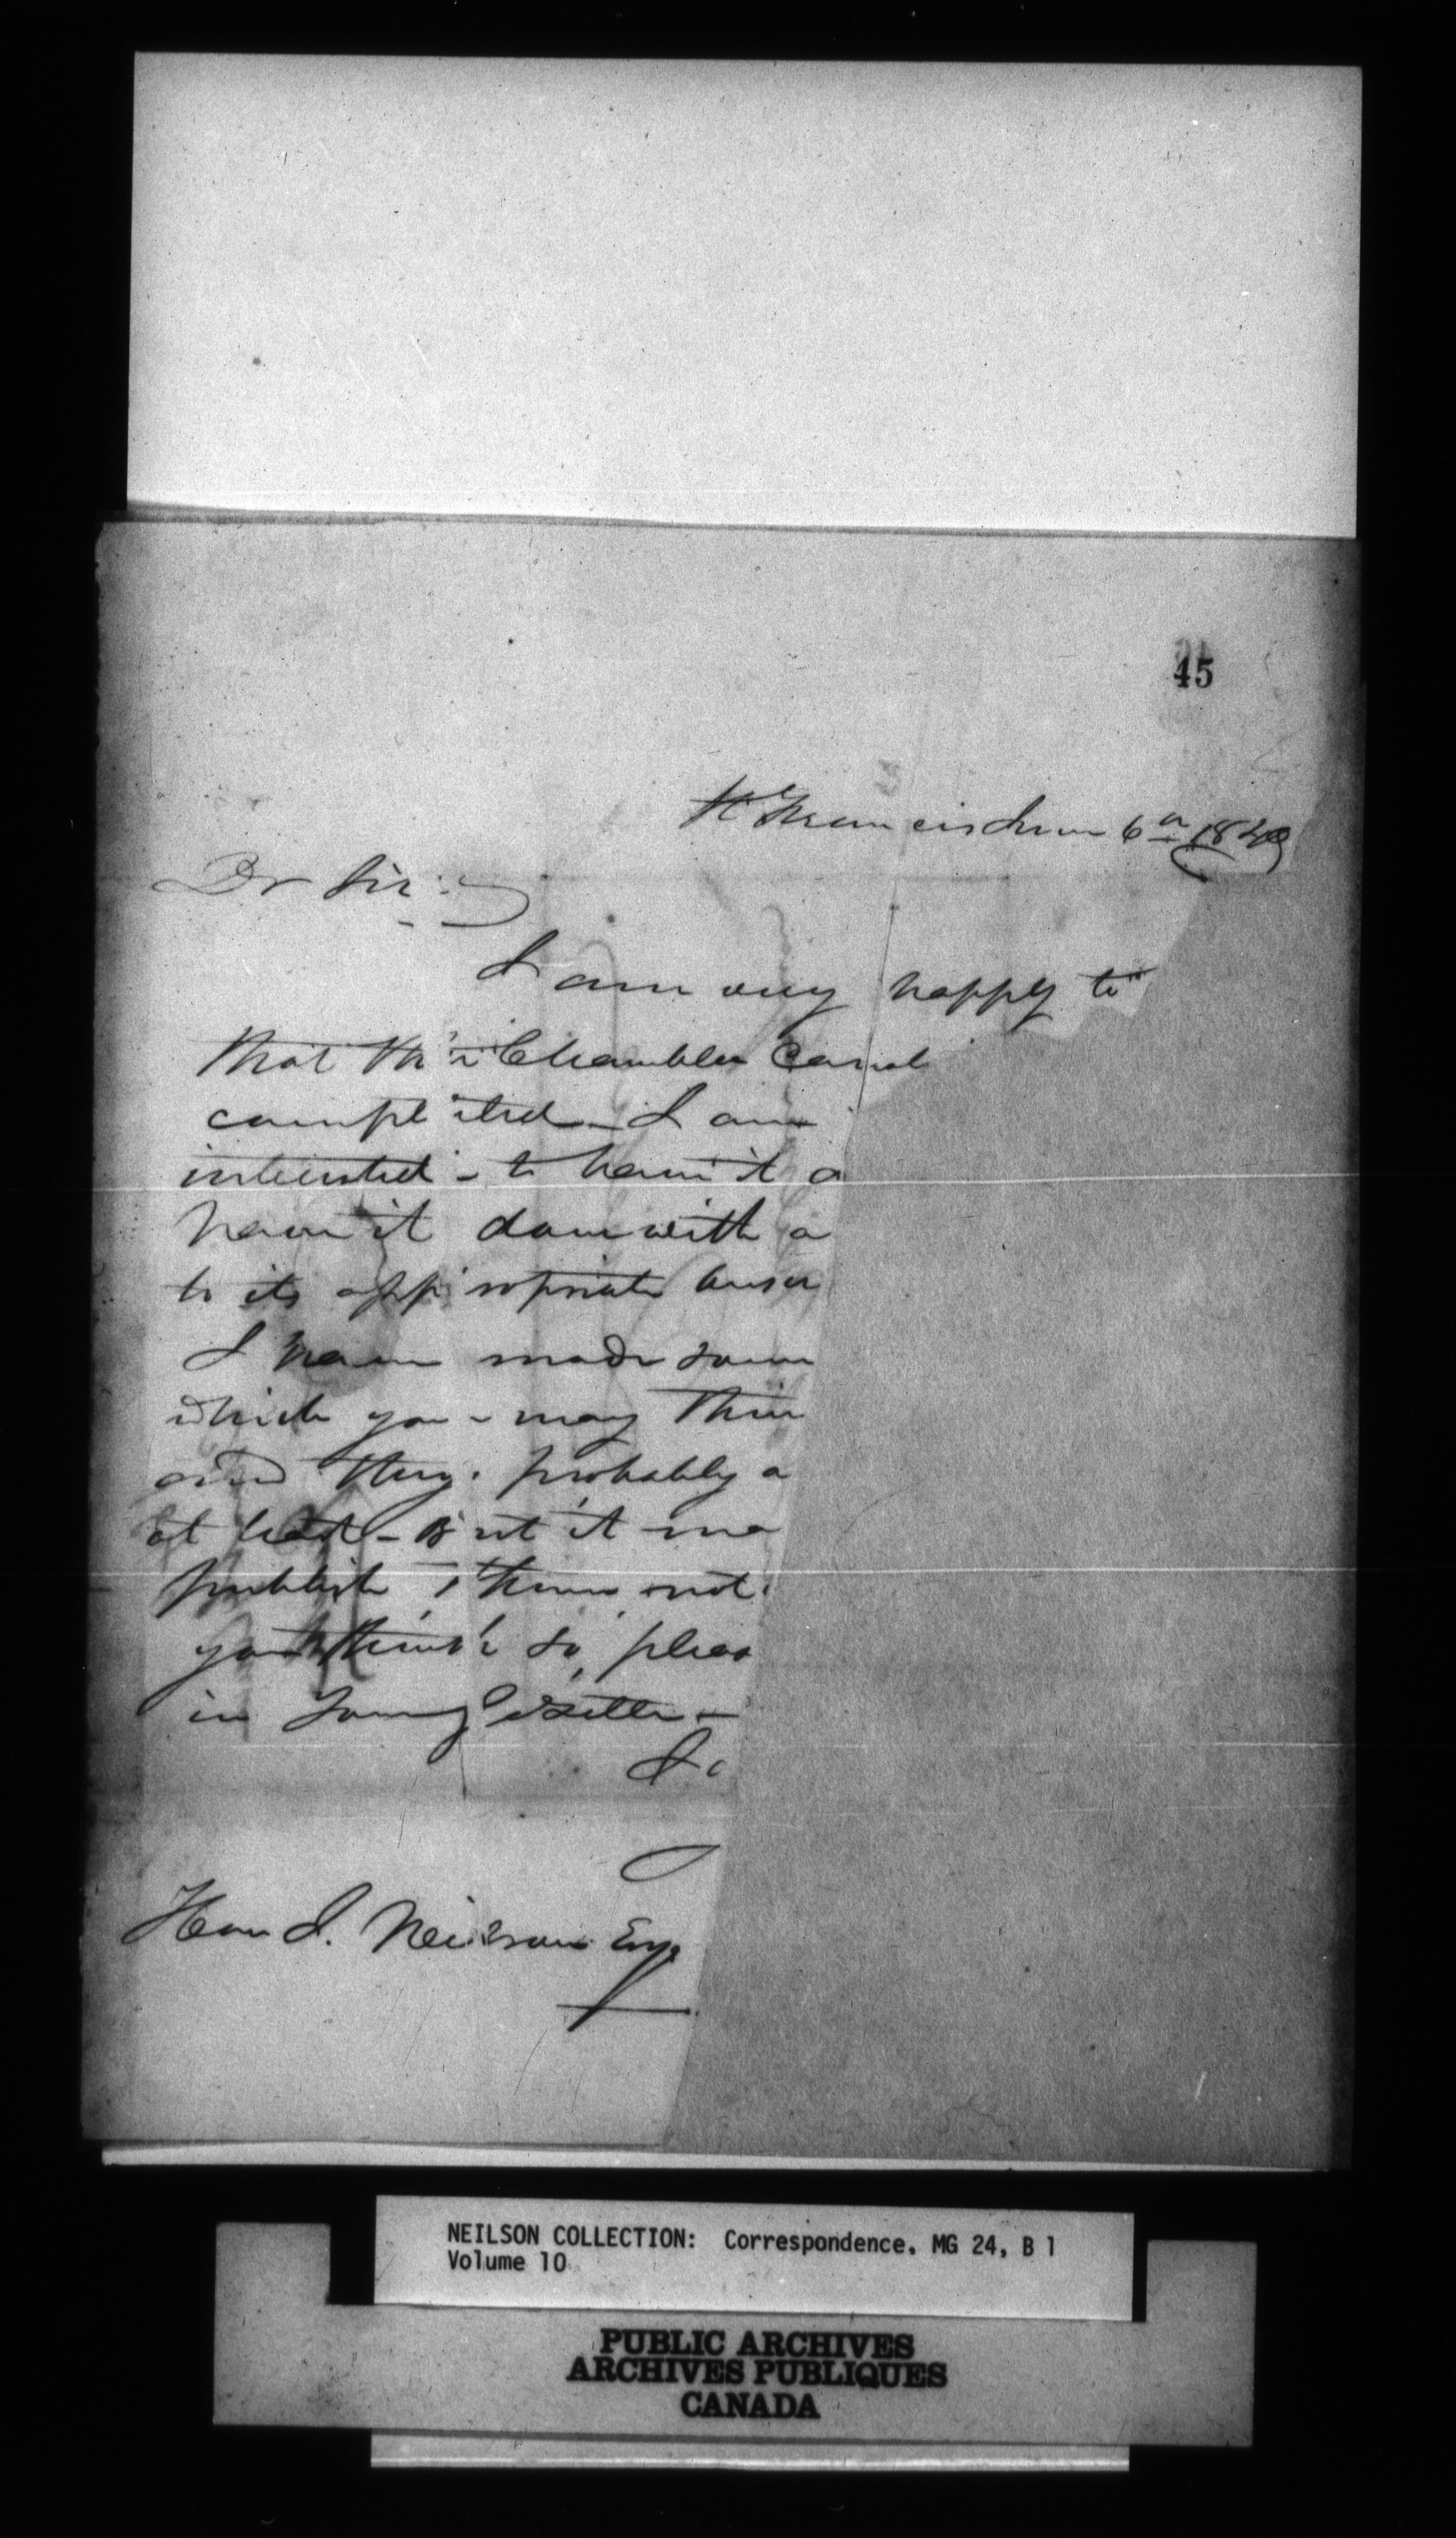 45
St Francis June 6th 1840
Dr Sir:
I am very happy to
that the Chambly Canal
completed - I am
interested - to have it a
have it done with a
to its appropriate
I have made some
which you may thin
and they probably a
at least - But it ma
publish them not
you think so, pleas
in your Gazette -
I
Hon J. Neilson Esqr
NEILSON COLLECTION: Correspondence, MG 24, B 1
Volume 10
PUBLIC ARCHIVES
ARCHIVES PUBLIQUES
CANADA